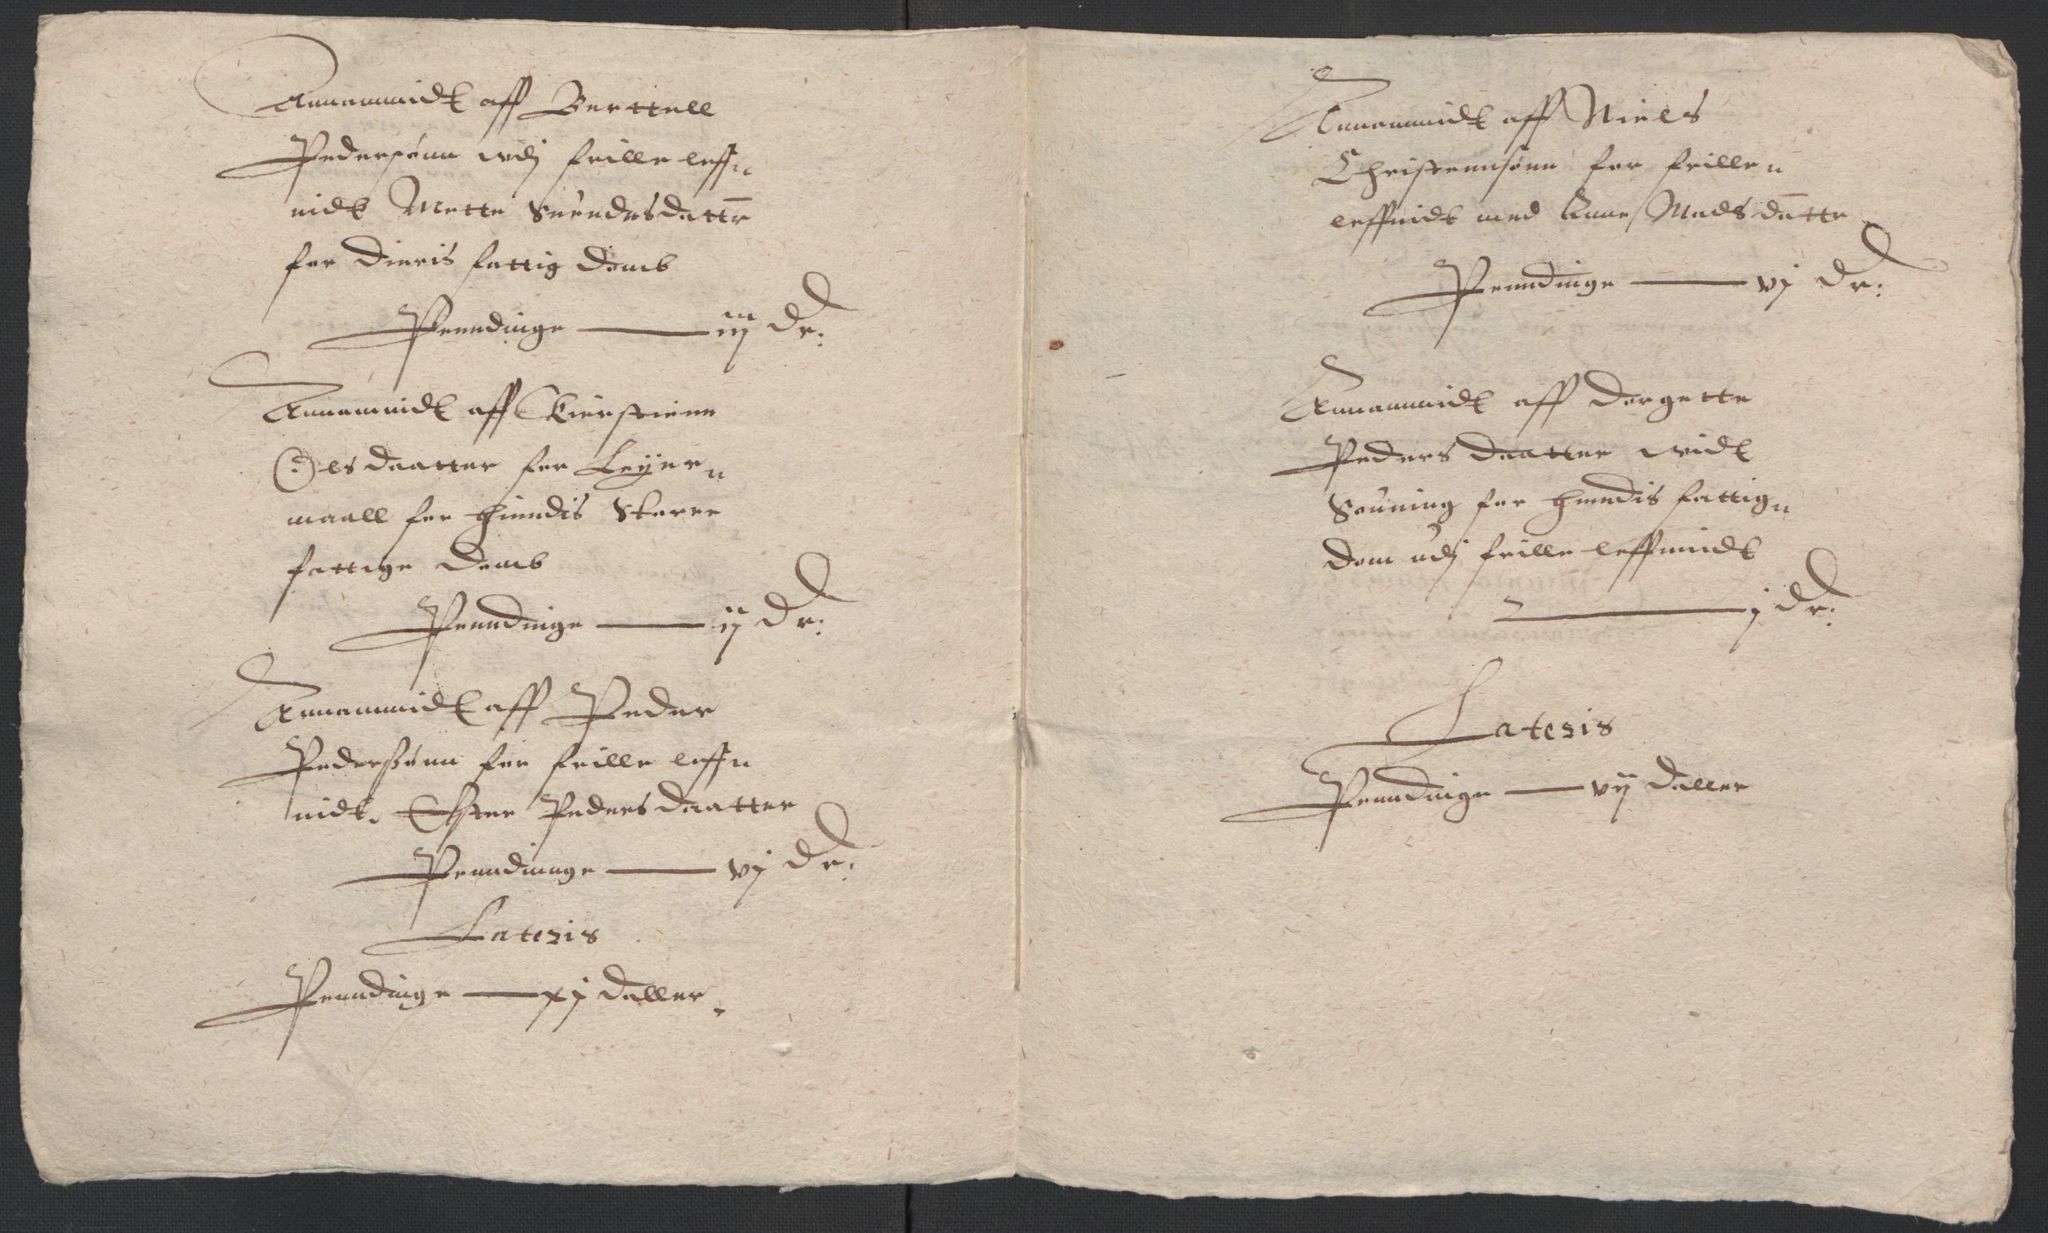 Annammidt aff Berttell
Pedersønn udj frille leff-
nidt Mette Suendsdatter
for dieris fattigdomb
Penndinge — iij dr:
Annammidt aff Kierstienn
Olsdaatter for Leyer-
maall for hiendis Storre
fattige domb
Penndinge — ij dr:
Annammidt aff Peder
Pedersønn for frille leff-
nidt. Ester Pedersdaatter
Penndinge — vj dr:
Lateris
Penndinge — xj daller.
Annammidt aff Niels
Christennsønn for frille-
leffnidt med Anne Madsdatter
Penndinge — vj dr:
Annammidt aff Dorgette
Pedersdaatter widt
for hiendis fattig-
dom udj frille leffnnidt
— j dr:
Lateris
Penndinge — vij daller